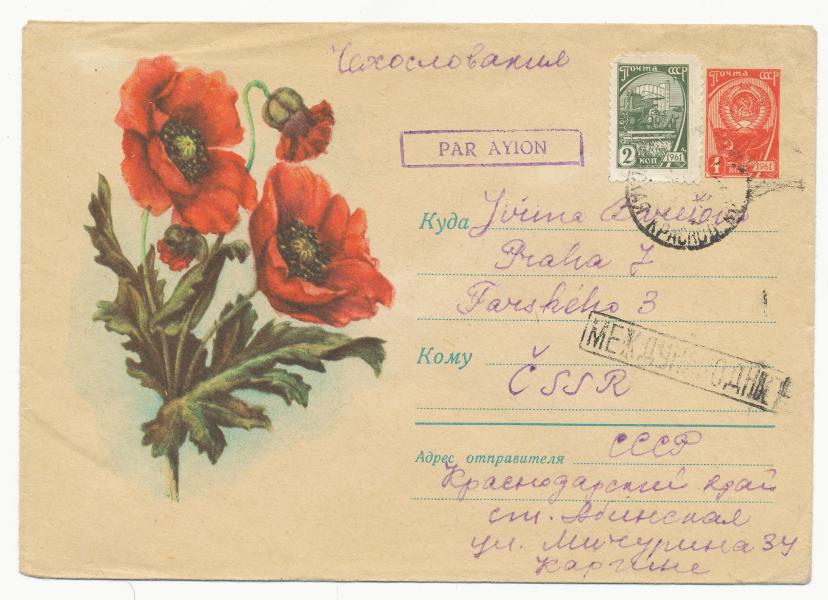 Чехословакия
PAR AVION
ПОЧТА СССР
2 КОП 1961
ПОЧТА СССР
4 КОП 1961
Куда Jiřina
Praha 7
Farského 3
Кому ČSSR
МЕЖДУНАРОДНОЕ
Адрес отправителя СССР
Краснодарский край
ст. Абинская
ул. Мичурина 34